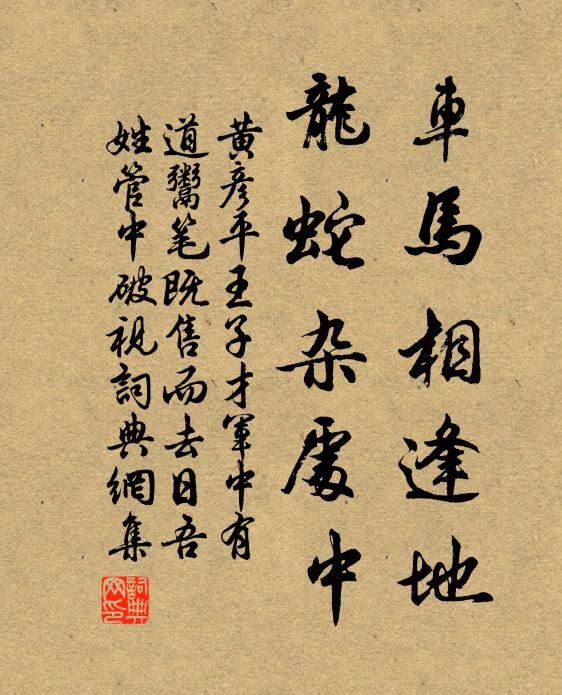 車馬相逢地
龍蛇杂處中
黄彦平王子才軍中有
道鬻笔既售而去日吾
姓管中破視詞典網集
詞典网印